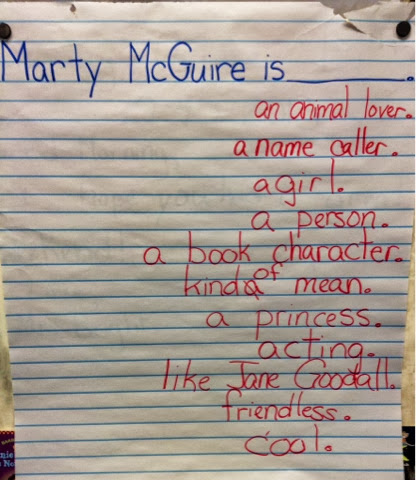 Marty McGuire is________.
an animal lover.
a name caller.
a girl.
a person.
a book character.
kinda of mean.
a princess.
acting.
like Jane Goodall.
friendless.
cool.